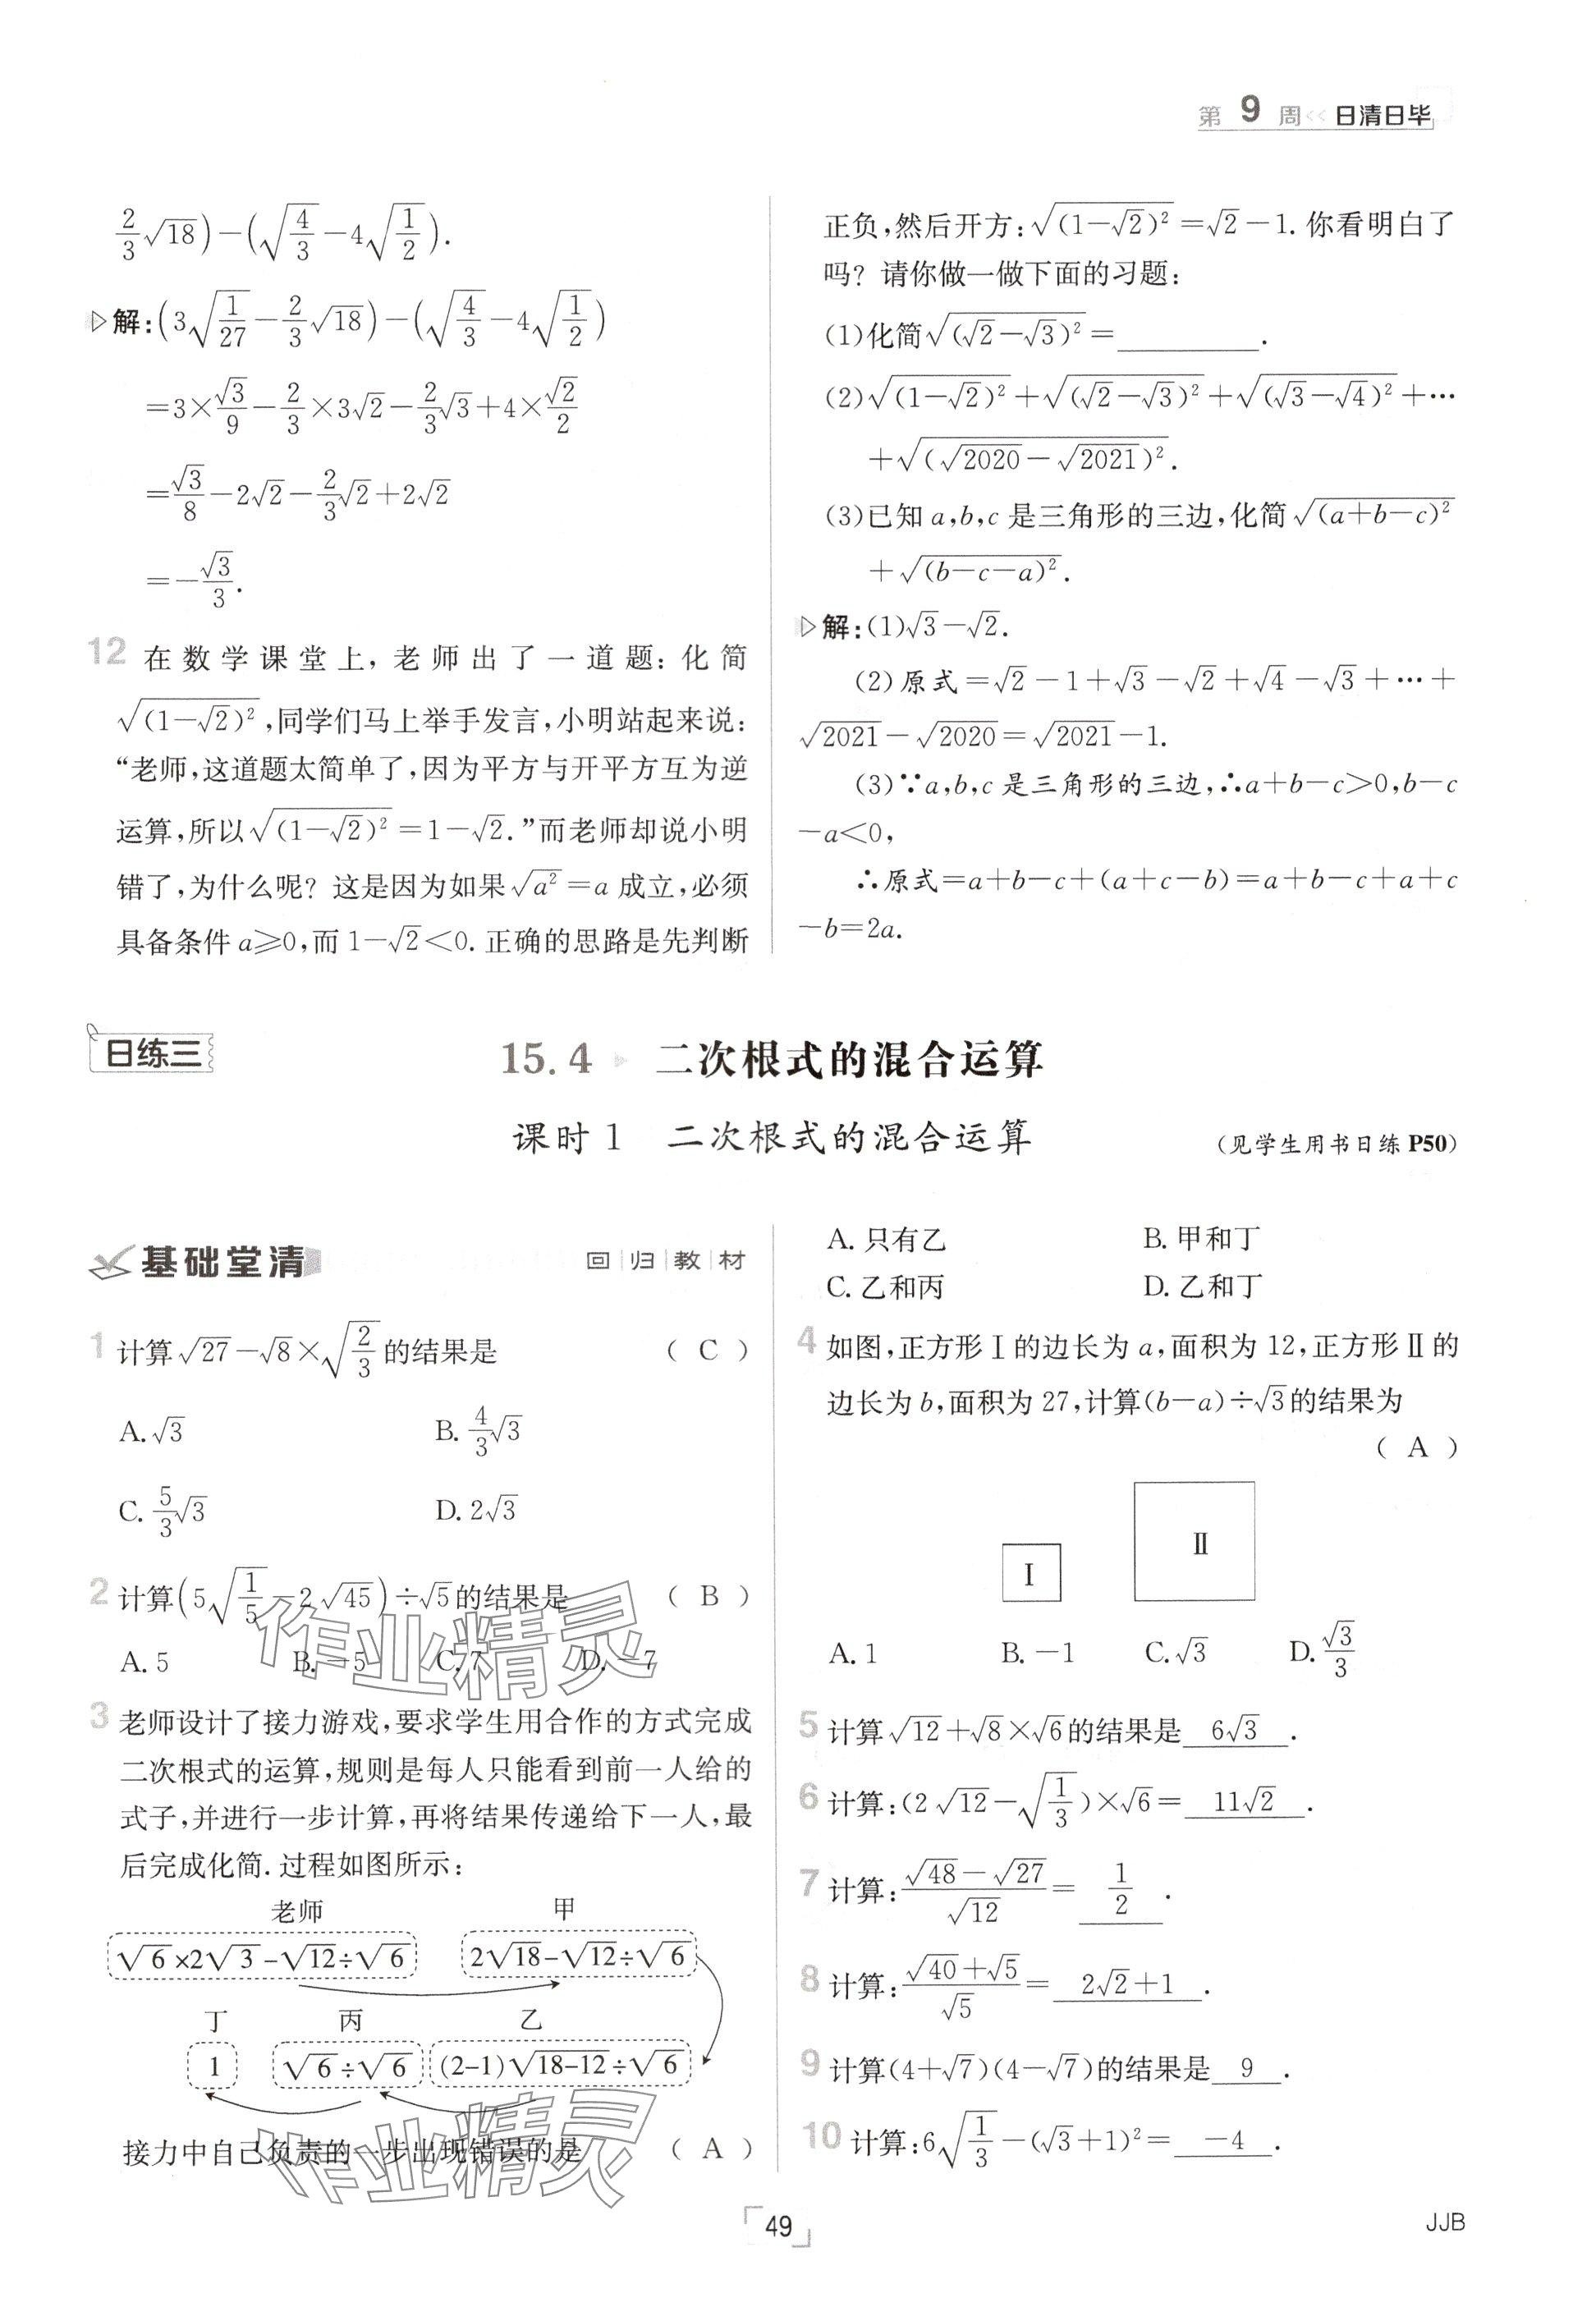 第 9 周 << 日清日毕
2/3√18)-(√(4/3)-4√(1/2)).
▷解:(3√(1/27)-2/3√18)-(√(4/3)-4√(1/2))
=3×√3/9-2/3×3√2-2/3√3+4×√2/2
=√3/8-2√2-2/3√2+2√2
=-√3/3.
12 在数学课堂上,老师出了一道题:化简
√((1-√2)²),同学们马上举手发言,小明站起来说:
“老师,这道题太简单了,因为平方与开平方互为逆
运算,所以√((1-√2)²)=1-√2.”而老师却说小明
错了,为什么呢?这是因为如果√(a²)=a 成立,必须
具备条件 a≥0,而 1-√2<0.正确的思路是先判断
正负,然后开方:√((1-√2)²)=√2-1.你看明白了
吗?请你做一做下面的习题:
(1)化简√((√2-√3)²)=________.
(2)√((1-√2)²)+√((√2-√3)²)+√((√3-√4)²)+…
+√((√2020-√2021)²).
(3)已知 a,b,c 是三角形的三边,化简√((a+b-c)²)
+√((b-c-a)²).
▷解:(1)√3-√2.
(2)原式=√2-1+√3-√2+√4-√3+…+
√2021-√2020=√2021-1.
(3)∵a,b,c 是三角形的三边,∴a+b-c>0,b-c
-a<0,
∴原式=a+b-c+(a+c-b)=a+b-c+a+c
-b=2a.
日练三
15.4 ▷ 二次根式的混合运算
课时 1 二次根式的混合运算
(见学生用书日练 P50)
基础堂清
回|归|教|材
1 计算√27-√8×√(2/3)的结果是 ( C )
A.√3 B.4/3√3
C.5/3√3 D.2√3
2 计算(5√(1/5)-2√45)÷√5的结果是 ( B )
A.5 B.-5 C.7 D.-7
3 老师设计了接力游戏,要求学生用合作的方式完成
二次根式的运算,规则是每人只能看到前一人给的
式子,并进行一步计算,再将结果传递给下一人,最
后完成化简.过程如图所示:
老师 甲
√6×2√3-√12÷√6 2√18-√12÷√6
丁 丙 乙
1 √6÷√6 (2-1)√(18-12)÷√6
接力中自己负责的一步出现错误的是 ( A )
A.只有乙 B.甲和丁
C.乙和丙 D.乙和丁
4 如图,正方形Ⅰ的边长为 a,面积为 12,正方形Ⅱ的
边长为 b,面积为 27,计算(b-a)÷√3的结果为
( A )
Ⅰ Ⅱ
A.1 B.-1 C.√3 D.√3/3
5 计算√12+√8×√6的结果是 6√3 .
6 计算:(2√12-√(1/3))×√6= 11√2 .
7 计算:(√48-√27)/√12= 1/2 .
8 计算:(√40+√5)/√5= 2√2+1 .
9 计算(4+√7)(4-√7)的结果是 9 .
10 计算:6√(1/3)-(√3+1)²= -4 .
作业精灵
作业精灵
49
JJB